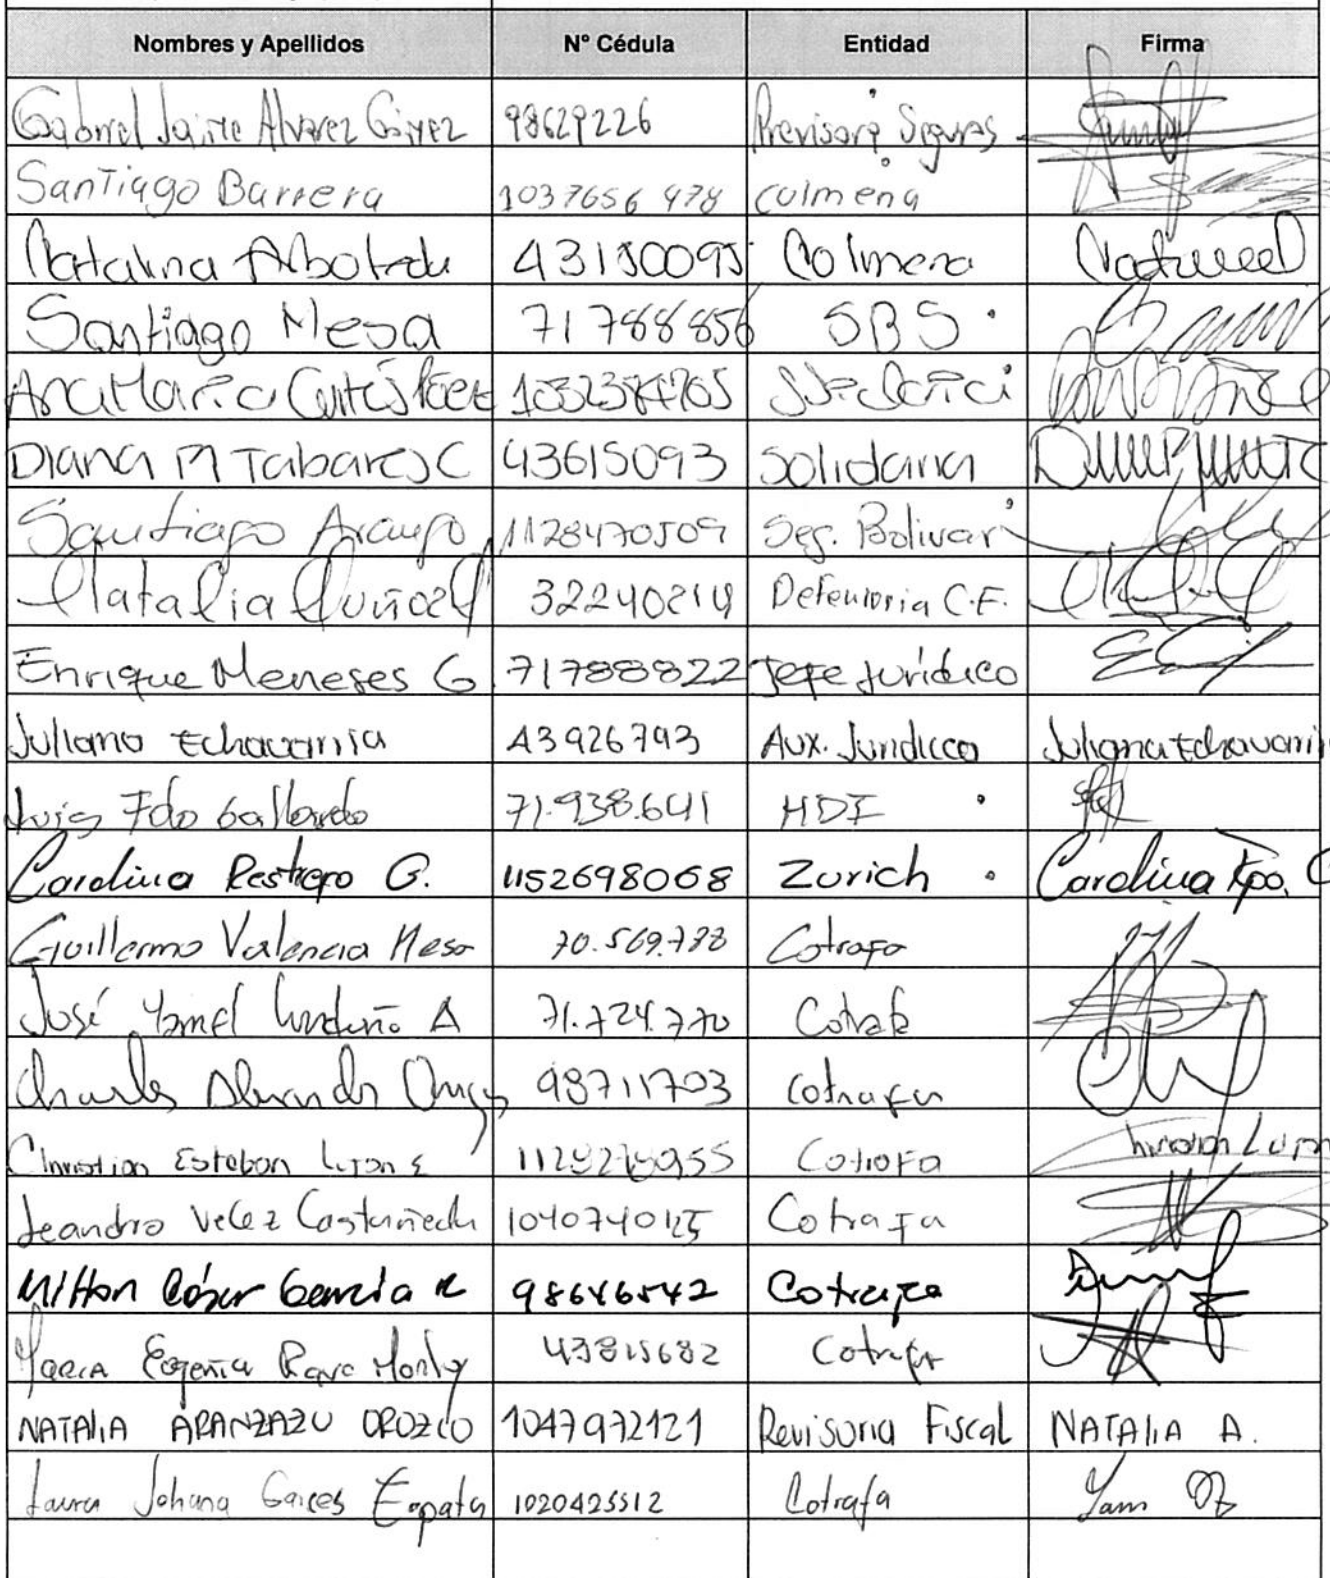 Nombres y Apellidos Nº Cédula Entidad Firma
Gabriel Jaime Alvarez Gómez 98629226 Previsora Seguros
Santiago Barrera 1037656478 Colmena
Catalina Arboleda 43150095 Colmena
Santiago Mesa 71788856 SBS
Ana María Cortés Páez
Diana M Tabares C 43615093 Solidaria
Santiago Araujo 1128470509 Seg. Bolivar
Natalia 32240214 Defensoria C.F.
Enrique Meneses G 71788822 Jefe Jurídico
Juliana Echavarria 43926793 Aux. Juridica Juliana Echavarri
Luis Fdo Gallardo 71.938.641 HDI
Carolina Restrepo G. 1152698068 Zurich Carolina Rpo. G
Guillermo Valencia Mesa 70.569.788 Cotrafa
José Yamel Londoño A 71.724.770 Cotrafa
Charles 98711703 Cotrafa
Christian Esteban Cotrafa
Leandro Velez Castañeda 1040740125 Cotrafa
Milton César García R 98646542 Cotrafa
Maria Eugenia 43815682 Cotrafa
NATALIA ARANZAZU OROZCO 1047972121 Revisoria Fiscal NATALIA A.
Laura Johana Garces Zapata 1020425512 Cotrafa